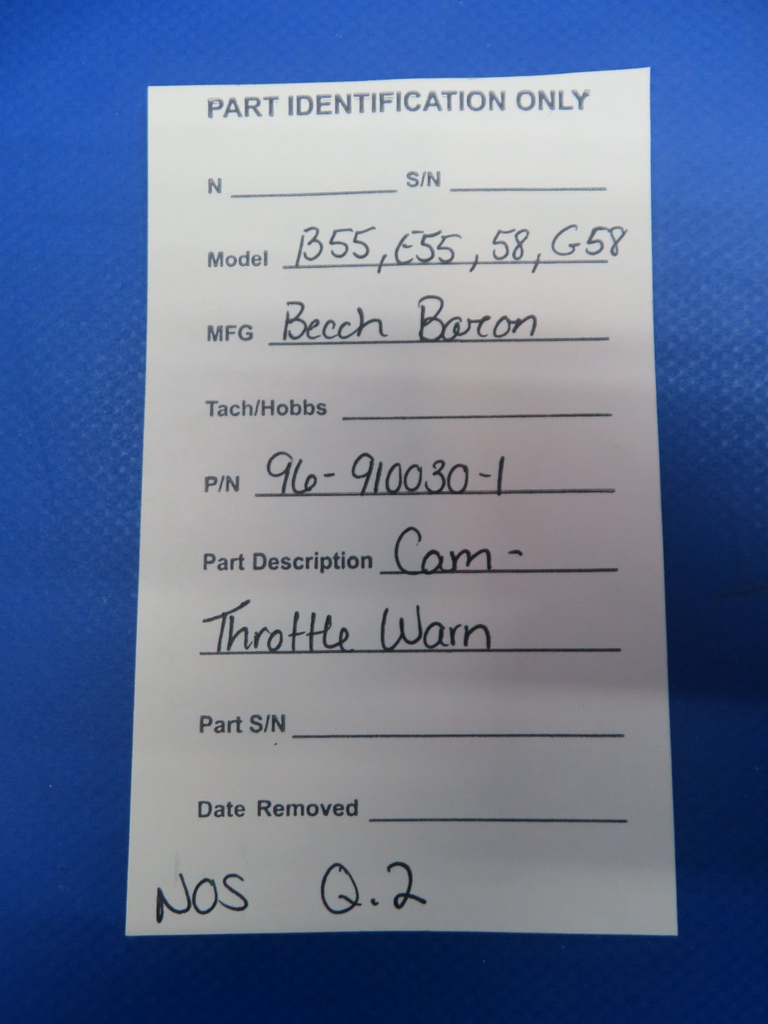 PART IDENTIFICATION ONLY
N __________ S/N __________
Model B55, E55, 58, G58
MFG Beech Baron
Tach/Hobbs __________
P/N 96-910030-1
Part Description Cam -
Throttle Warn
Part S/N __________
Date Removed __________
NOS Q.2